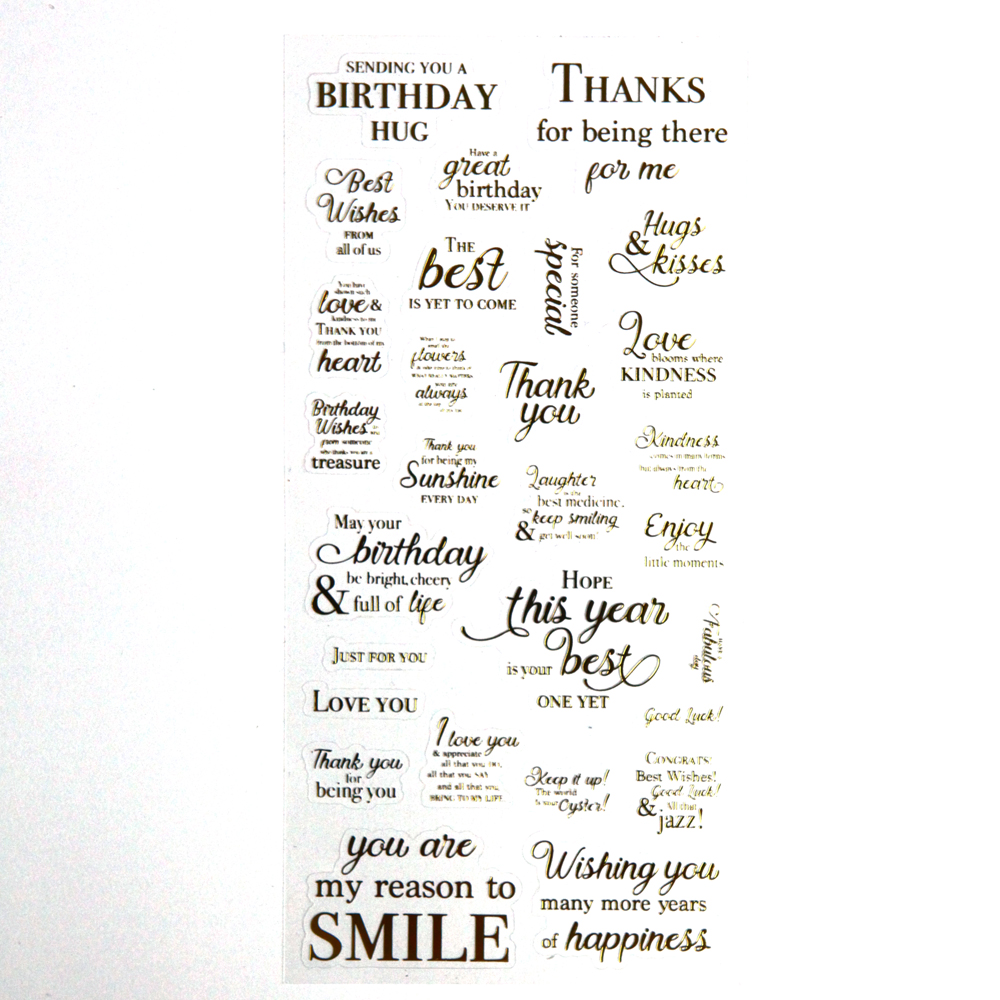 SENDING YOU A
BIRTHDAY
HUG
THANKS
for being there
for me
Have a
great
birthday
YOU DESERVE IT
Best
Wishes
FROM
all of us
Hugs
& kisses
THE
best
IS YET TO COME
For someone
special
You have
shown such
love &
kindness to me
THANK YOU
from the bottom of my
heart
Love
blooms where
KINDNESS
is planted
flowers
always
Thank
you
Birthday
Wishes
from someone
who thinks you are a
treasure
Thank you
for being my
Sunshine
EVERY DAY
Kindness
comes in many forms
but always from the
heart
Laughter
is the
best medicine.
so keep smiling
& get well soon!
May your
birthday
be bright, cheery
& full of life
Enjoy
the
little moments
HOPE
this year
is your best
ONE YET
Have a
Fabulous
day
JUST FOR YOU
LOVE YOU
Good Luck!
I love you
& appreciate
all that you DO,
all that you SAY
and all that you
BRING TO MY LIFE
Thank you
for
being you
Keep it up!
The world
is your Oyster!
CONGRATS!
Best Wishes!
Good Luck!
& All that
jazz!
you are
my reason to
SMILE
Wishing you
many more years
of happiness